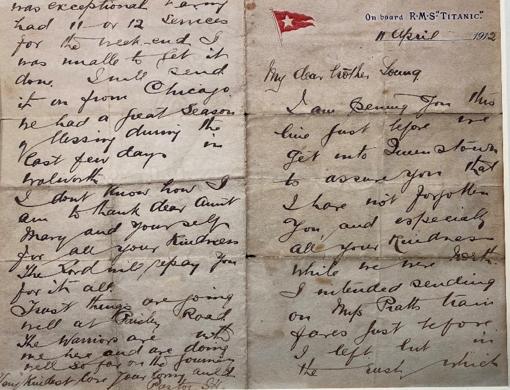 On board R·M·S "TITANIC."
11 April 1912
My dear brother Young
I am penning you this
line just before we
get into Queenstown
to assure you that
I have not forgotten
you, and especially
all your kindness
while we were North.
I intended sending
on Miss Pratts train
fares just before
I left but in
the rush which
was exceptional having
had 11 or 12 Services
for the week-end I
was unable to get it
done. I will send
it on from Chicago.
We had a great Season
of blessing during the
last few days in
Walworth
I don't know how I
am to thank dear Aunt
Mary and yourself
for all your kindness
The Lord will repay you
for it all.
Trust things are going
well at Paisley Road
The Warriors are with
me here and are doing
well so far on the journey
kindest love Your loving auld
Pastor J.H.